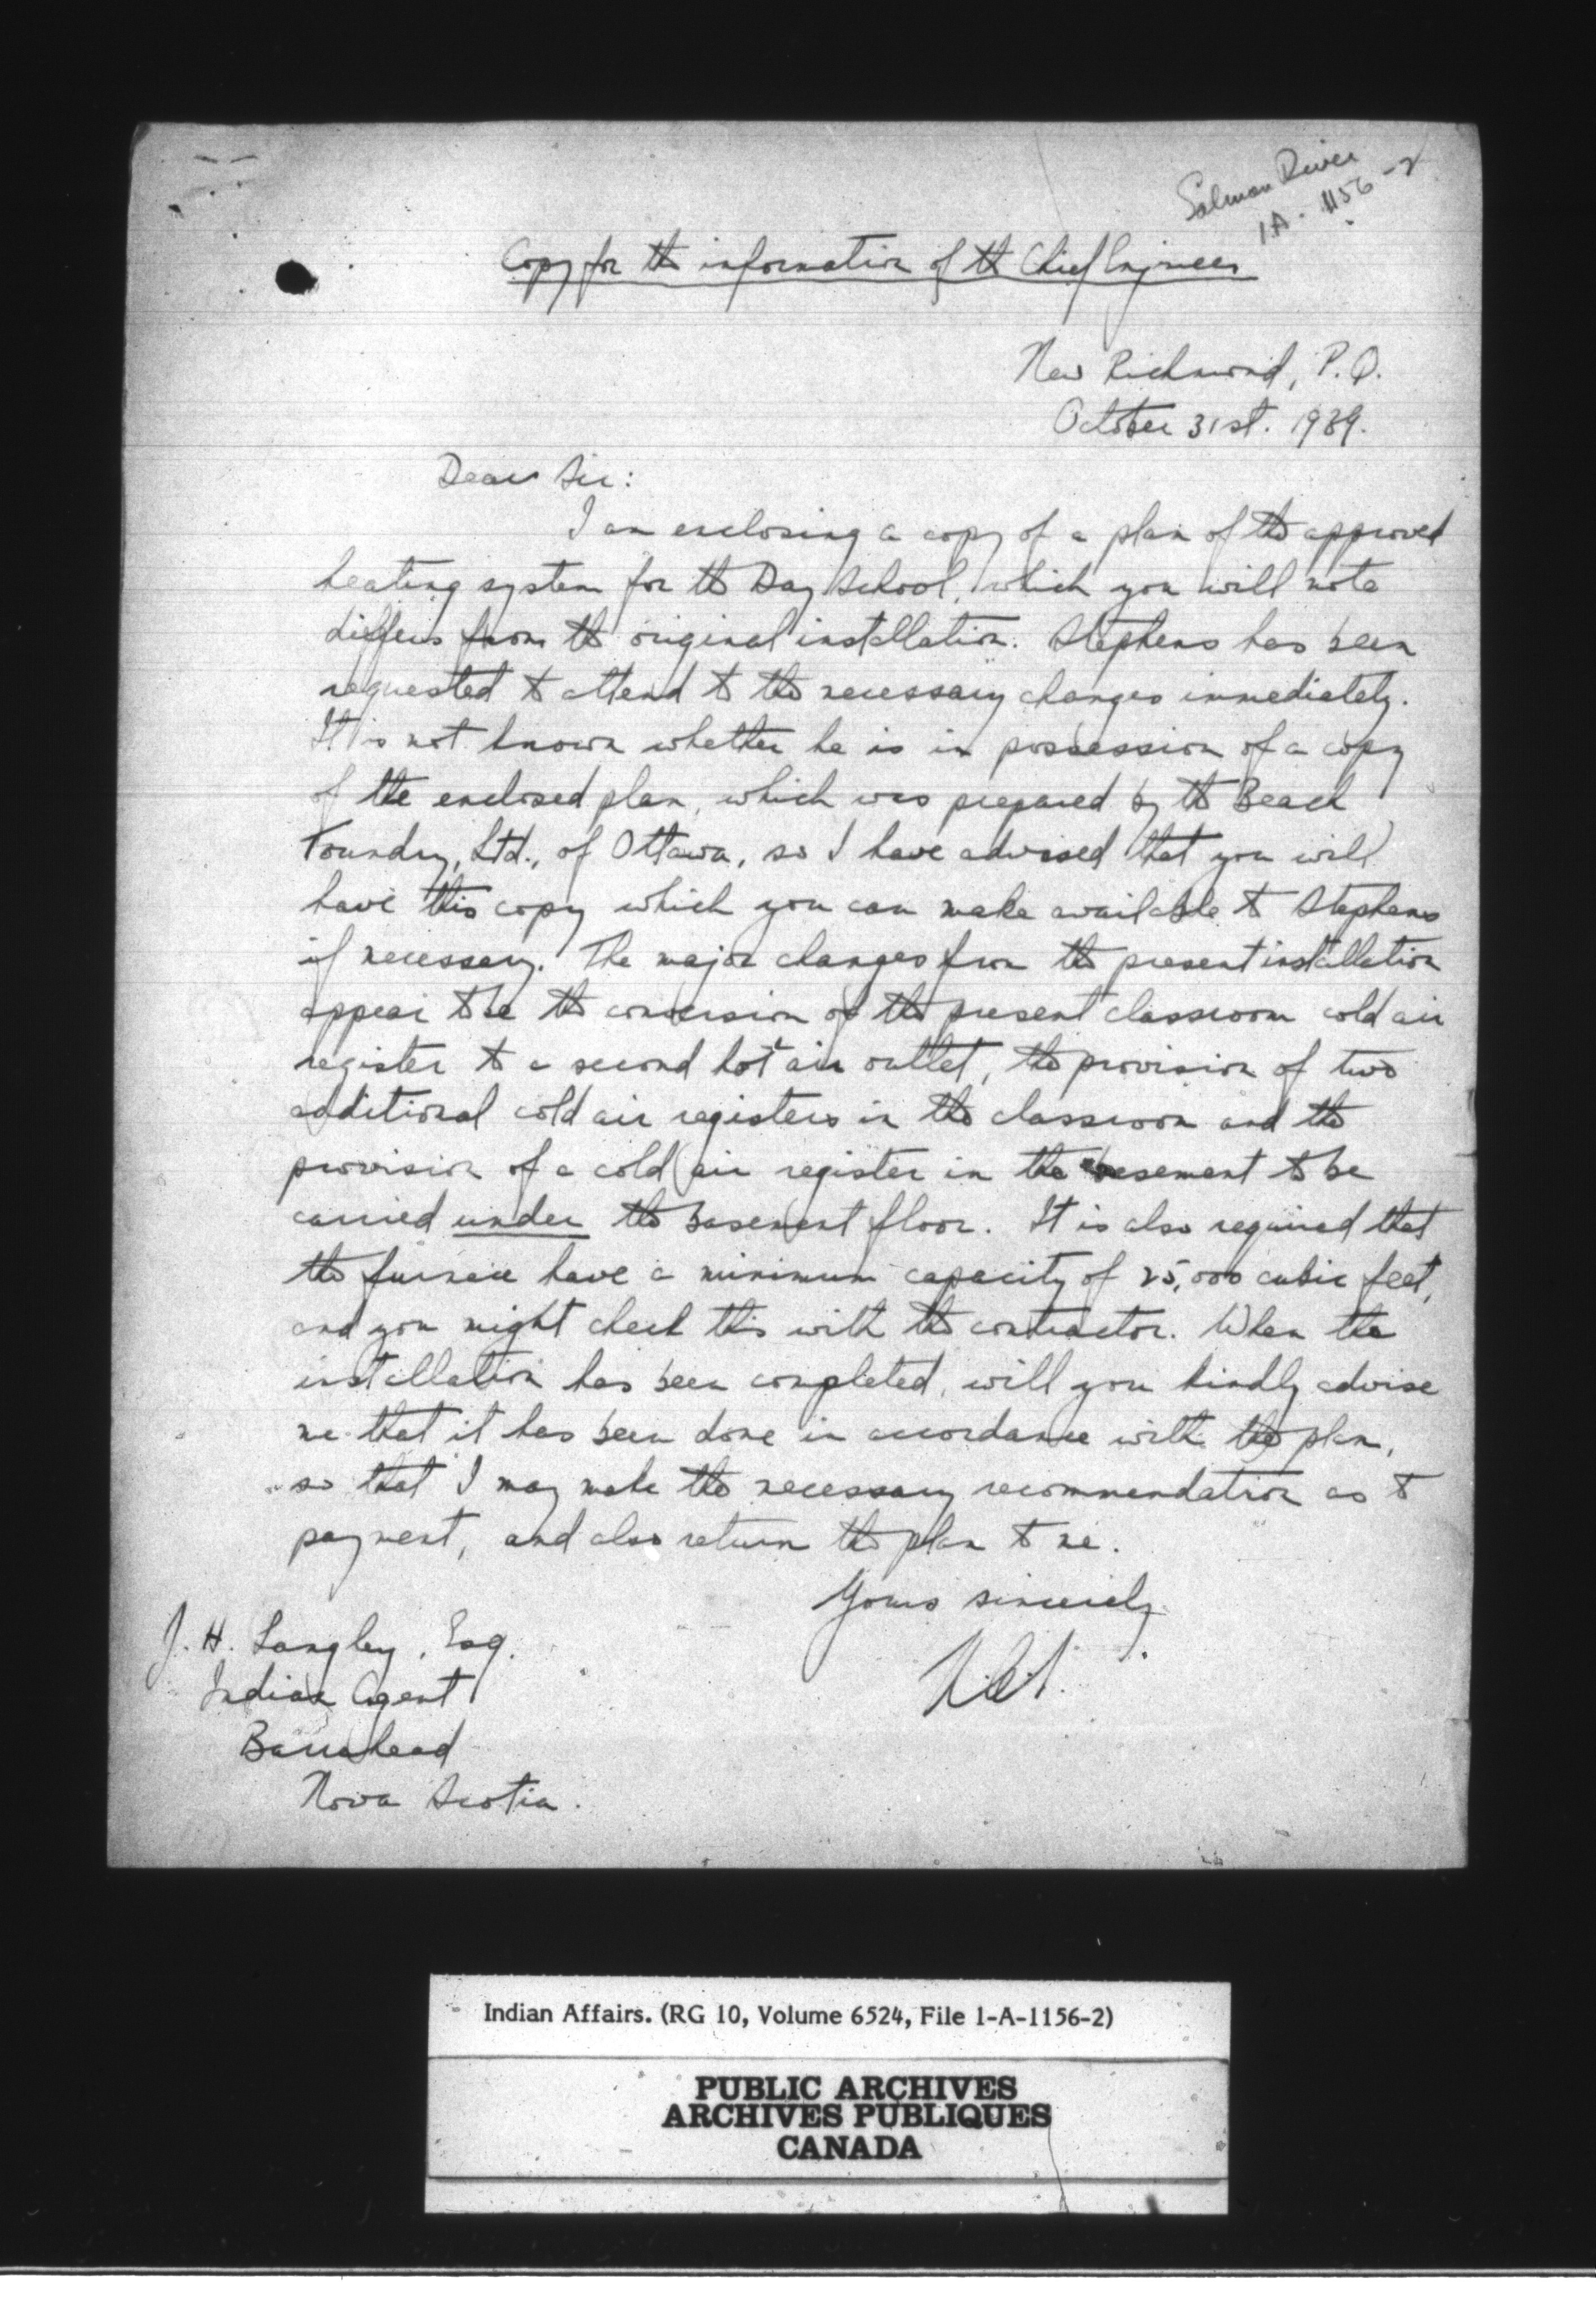 Salmon River
1A - 1156 - 2
Copy for the information of the Chief Engineer
New Richmond, P.Q.
October 31st. 1939.
Dear Sir:
I am enclosing a copy of a plan of the approved
heating system for the Day School, which you will note
differs from the original installation. Stephens has been
requested to attend to the necessary changes immediately.
It is not known whether he is in possession of a copy
of the enclosed plan, which was prepared by the Beach
Foundry, Ltd., of Ottawa, so I have advised that you will
have this copy which you can make available to Stephens
if necessary. The major changes from the present installation
appear to be the conversion of the present classroom cold air
register to a second hot air outlet, the provision of two
additional cold air registers in the classroom and the
provision of a cold air register in the basement to be
carried under the basement floor. It is also required that
the furnace have a minimum capacity of 25,000 cubic feet,
and you might check this with the contractor. When the
installation has been completed, will you kindly advise
me that it has been done in accordance with the plan,
so that I may make the necessary recommendation as to
payment, and also return the plan to me.
Yours sincerely
J. H. Langley, Esq.
Indian Agent
Barrahead
Nova Scotia.
Indian Affairs. (RG 10, Volume 6524, File 1-A-1156-2)
PUBLIC ARCHIVES
ARCHIVES PUBLIQUES
CANADA